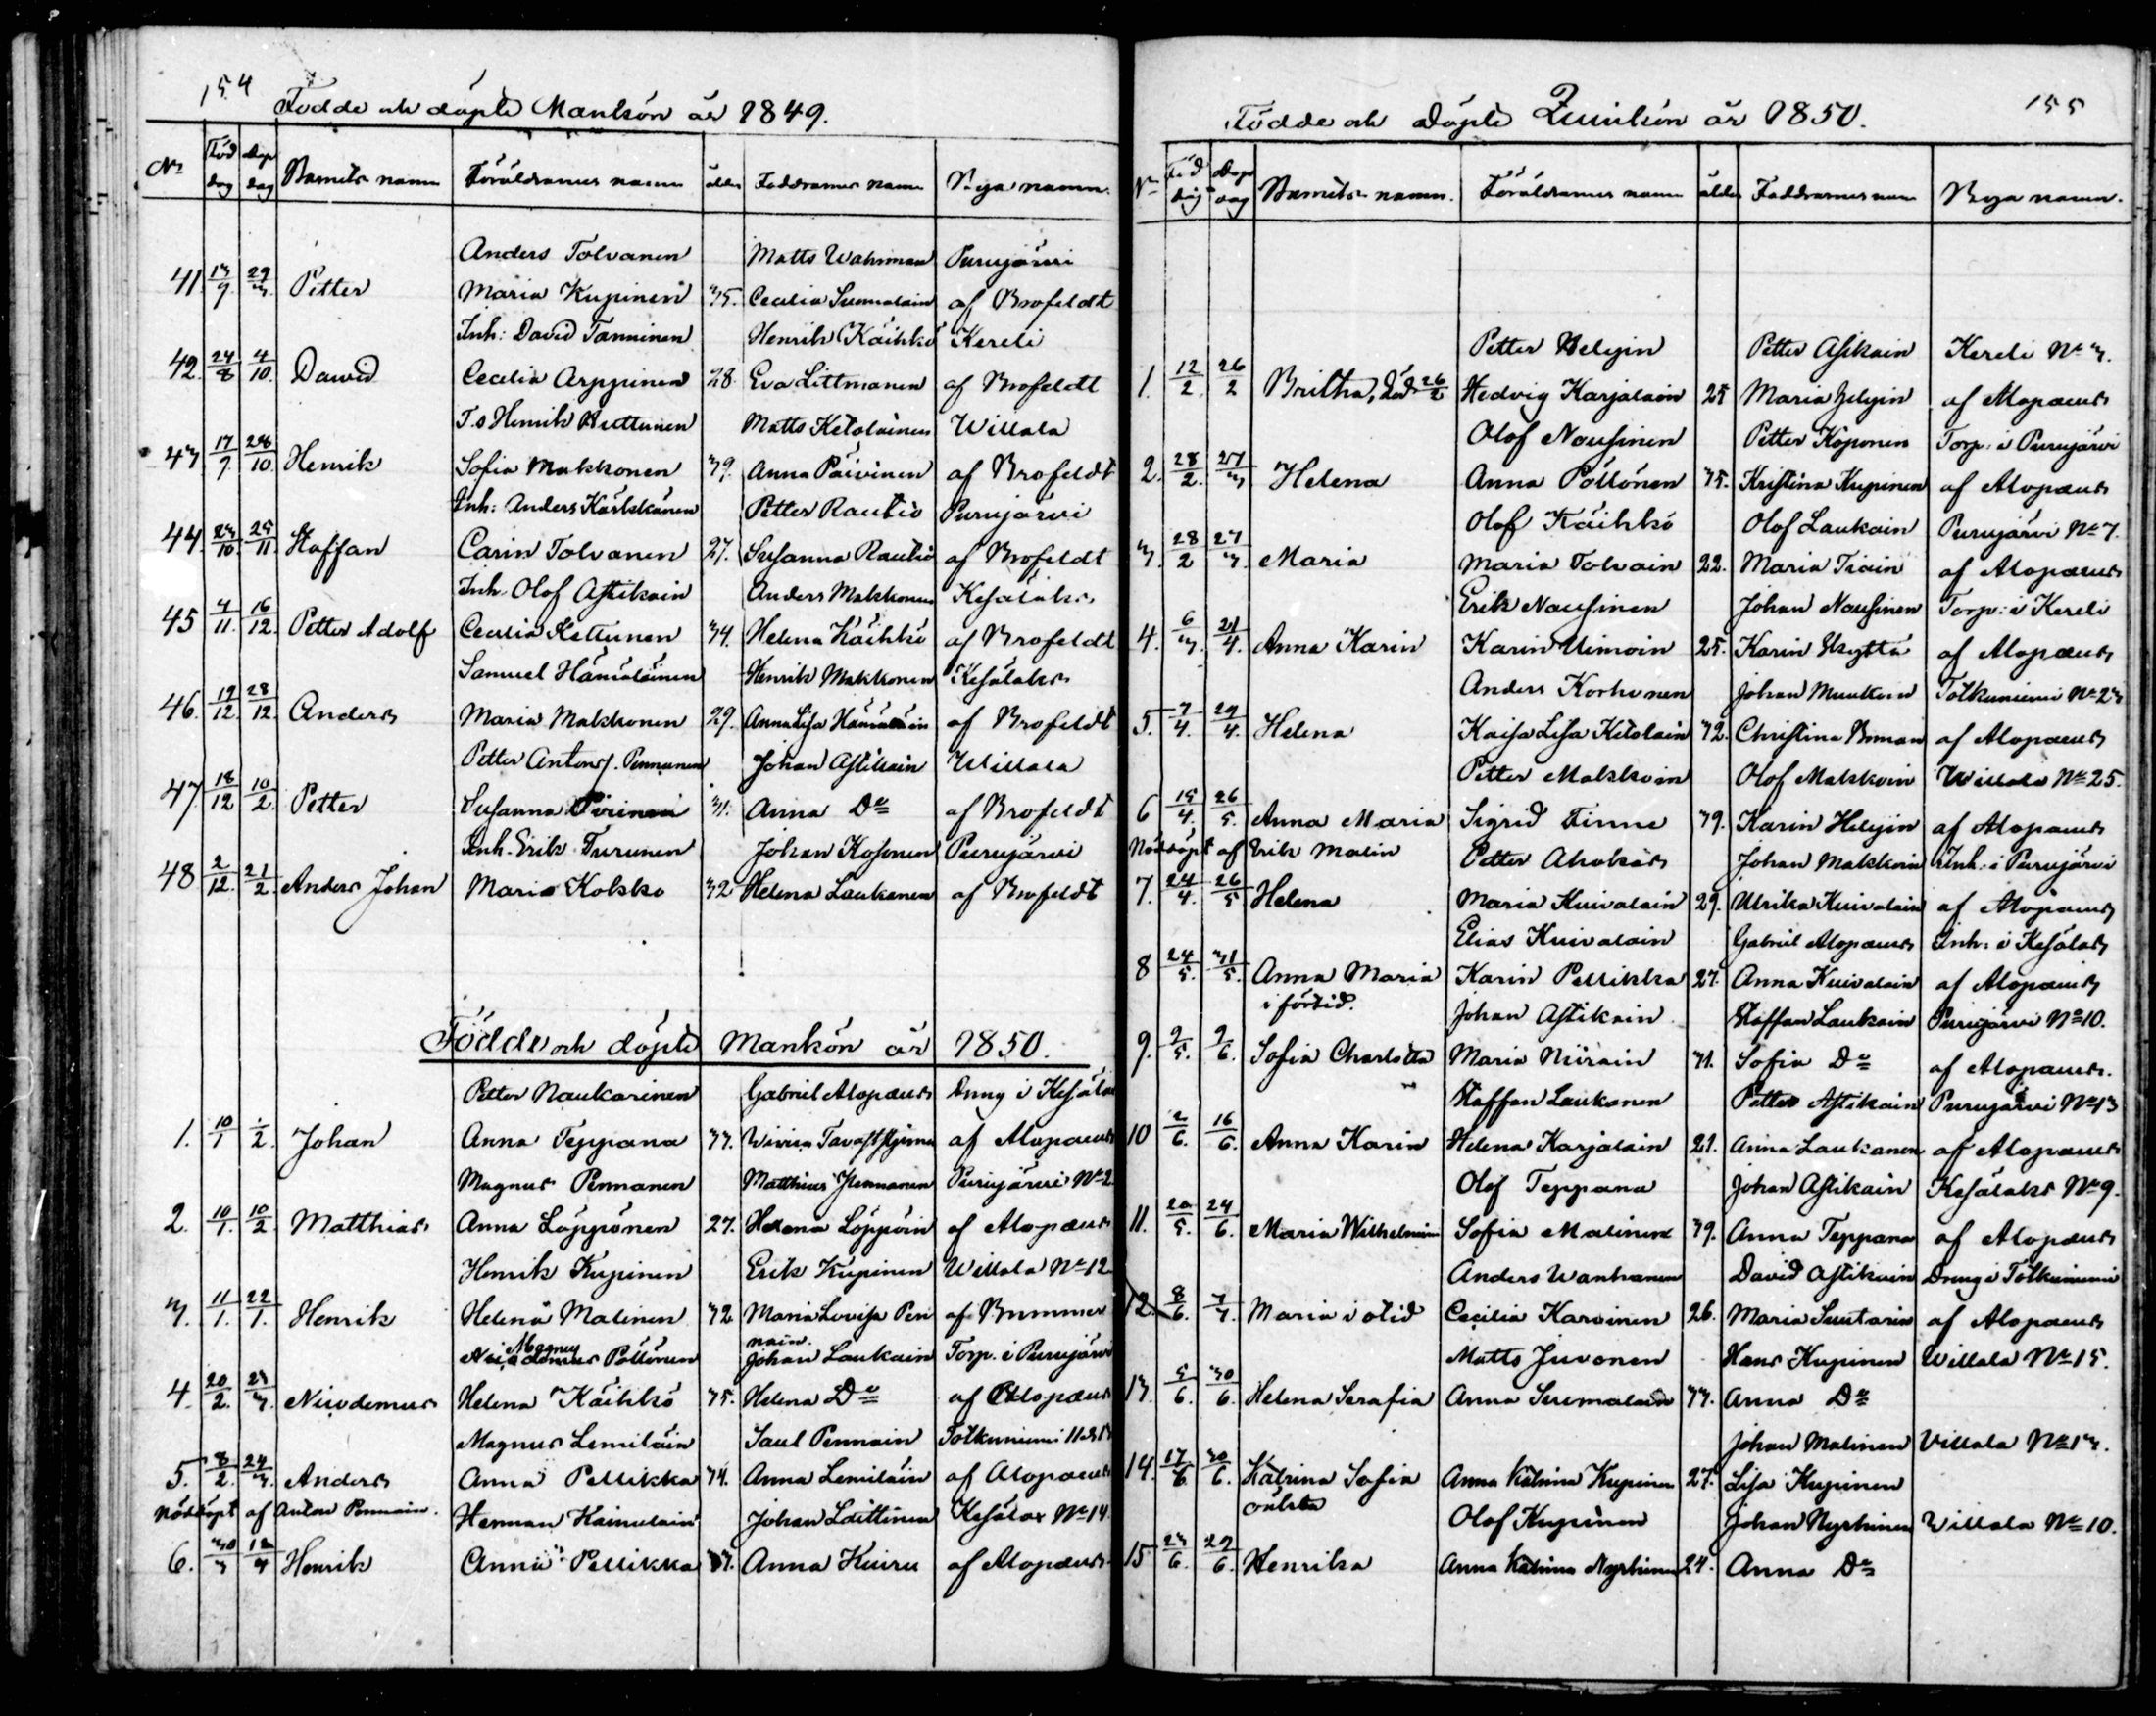 154
Födde och döpte Mankön år 1849.
No Föd dag Döp dag Barnets namn Föräldrarnes namn ålder Faddrarnes namn Bya namn.
Anders Tolvanen Matts Wahvman Purujärvi
41. 13/9. 29/3. Petter Maria Kupinen 35. Cecilia Suomalain af Brofeldt
Inh: David Tanninen Henrik Käihkö Kereli
42. 24/8 4/10. David Cecilia Arppinen 28. Eva Littmanen af Brofeldt
T.s Henrik Huttunen Matts Ketolainen Willala
43 17/7 28/10. Henrik Sofia Makkonen 39. Anna Päivinen af Brofeldt
Inh: Anders Karkkanen Petter Rautio Purujärvi
44. 23/10. 25/11. Staffan Carin Tolvanen 27. Susanna Rautio af Brofeldt
Inh. Olof Astikain Anders Makkonen Kesälaks
45 4/11. 16/12. Petter Adolf Cecilia Kettunen 34. Helena Käihkö af Brofeldt
Samuel Hämäläinen Henrik Makkonen Kesälaks
46. 19/12. 28/12. Anders Maria Makkonen 29. Anna Lisa Hämäläin af Brofeldt
Petter Antons s. Pennanen Johan Astikain Willala
47 18/12 10/2. Petter Susanna Piirinen 31. Anna Do af Brofeldt
Inh. Erik Turunen Johan Kosonen Purujärvi
48 2/12. 21/2. Anders Johan Maria Kolsko 32 Helena Laukanen af Brofeldt
Födde och döpte Mankön år 1850.
Petter Naukarinen Gabriel Alopæus Dräng i Kesälax
1. 10/1 1/2. Johan Anna Teppana 37. Wivica Tavaststjerna af Alopæus
Magnus Pennanen Matthias Pennanen Purujärvi No 2.
2. 10/1. 10/2. Matthias Anna Löppönen 27. Helena Löppöin af Alopæus
Henrik Kupinen Erik Kupinen Willala No 12
3. 11/1. 22/1. Henrik Helena Malinen 32 Maria Lovisa Pennain. af Brummer
Magnus Pöllönen Johan Laukain Torp. i Purujärvi
4. 20/2. 23/3. Nicodemus Helena Käihkö 35. Helena Do af Alopæus
Magnus Lemiläin Saul Pennain Tolkuniemi
5. 8/2. 24/3. Anders Anna Pellikka 34. Anna Lemiläin af Alopæus
Nöddöpt af Anton Pennain. Herman Kainulain Johan Laittinen Kesälax No 14.
6. 30/3 Henrik Anna Pellikka 37. Anna Kuiru af Alopæus
155
Födde och Döpte Quinkön år 1850.
No Föd dag Döp dag Barnets namn. Föräldrarnes namn ålder Faddrarnes namn Bya namn.
Petter Heljin Petter Asikain Kereli No 3.
1. 12/2. 26/2 Britha, död 26/2 Hedvig Karjalain 25 Maria Heljin af Alopæus
Olof Nousinen Petter Koponen Torp: i Purujärvi
2. 28/2. 27/3 Helena Anna Pöllönen 35. Kristina Kupinen af Alopæus
Olof Käihkö Olof Laukain Purujärvi No 7.
3. 28/2 27/3. Maria Maria Tolvain 22. Maria Tiain af Alopæus
Erik Nousinen Johan Nousinen Torp: i Kereli
4. 6/3. 21/4. Anna Karin Karin Uimoin 25. Karin Hyttä af Alopæus
Anders Korhonen Johan Muukoin Tolkuniemi No 23
5. 7/4. 29/4. Helena Kaisa Lisa Ketolain 32. Christina Boman af Alopæus
Petter Makkoin Olof Makkoin Willala No 25.
6 15/4. 26/5. Anna Maria Sigrid Finne 39. Karin Heljin af Alopæus
Nöddöpt af Erik Malin Petter Ahokas Johan Makkoin Inh: i Purujärvi
7. 24/4. 26/5 Helena Maria Kuivalain 29. Ulrika Kuivalain af Alopæus
Elias Kuivalain Gabriel Alopæus Inh: i Kesälax
8 24/5. 31/5. Anna Maria Karin Pellikka 27. Anna Kuivalain af Alopæus
i förtid. Johan Astikain Staffan Laukain Purujärvi No 10.
9. 9/5. 9/6. Sofia Charlotta Maria Niirain 31. Sofia Do af Alopæus.
Staffan Laukanen Petter Astikain Purujärvi No 13
10 2/6. 16/6. Anna Karin Helena Karjalain 21. Anna Laukanen af Alopæus
Olof Teppana Johan Astikain Kesälaks No 9.
11. 20/5. 24/6. Maria Wilhelmina Sofia Malinen 39. Anna Teppana af Alopæus
Anders Wanhanen David Astikain Dreng i Tolkuniemi
12. 8/6. 7/7. Maria i otid Cecilia Karvinen 26. Maria Suutarin af Alopæus
Matts Juvonen Hans Kupinen Willala No 15.
13. 5/6. 30/6. Helena Serafia Anna Suomalain 33. Anna Do
Johan Malinen Villala No 13.
14. 17/6. 30/6. Katrina Sofia oäkta Anna Katrina Kupinen 27. Lisa Kupinen
Olof Kupinen Johan Nyrhinen Willala No 10.
15 23/6. 29/6. Henrika Anna Katrina Nyrhinen 24. Anna Do